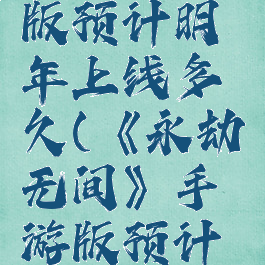 版预计明
年上线多
久(《永劫
无间》手
游版预计